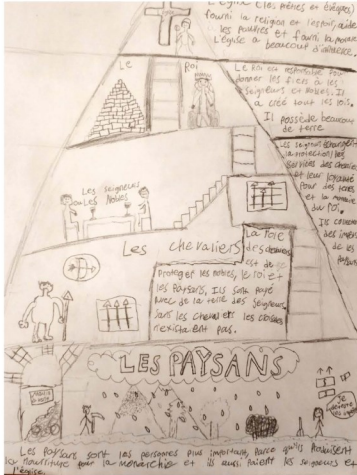 L'église (les prêtres et évêques)
fourni la religion et l'espoir, aide
les pauvres et fourni la
L'église a beaucoup d'influence.
Le Roi
Le Roi est responsable pour
donner les fiefs à les
seigneurs et nobles. Il
a créé tout les lois.
Il possède beaucoup
de terre
Les seigneurs échangent
la protection, les
services des
et leur loyauté
pour des terres
et la
du roi.
Ils
des
de les
Les seigneurs
ou Les Nobles
Les chevaliers
La foie
des chevaliers
est de
Proteger les nobles, le roi et
les Paysans. Ils sont payé
avec de la terre des seigneurs.
Sans les chevaliers les
n'existaient pas.
LES PAYSANS
Je
Les Paysans sont les personnes plus important, parce qu'ils Produisent
la nourriture pour la monarchie et ils aussi paient les seigneurs et
l'église.